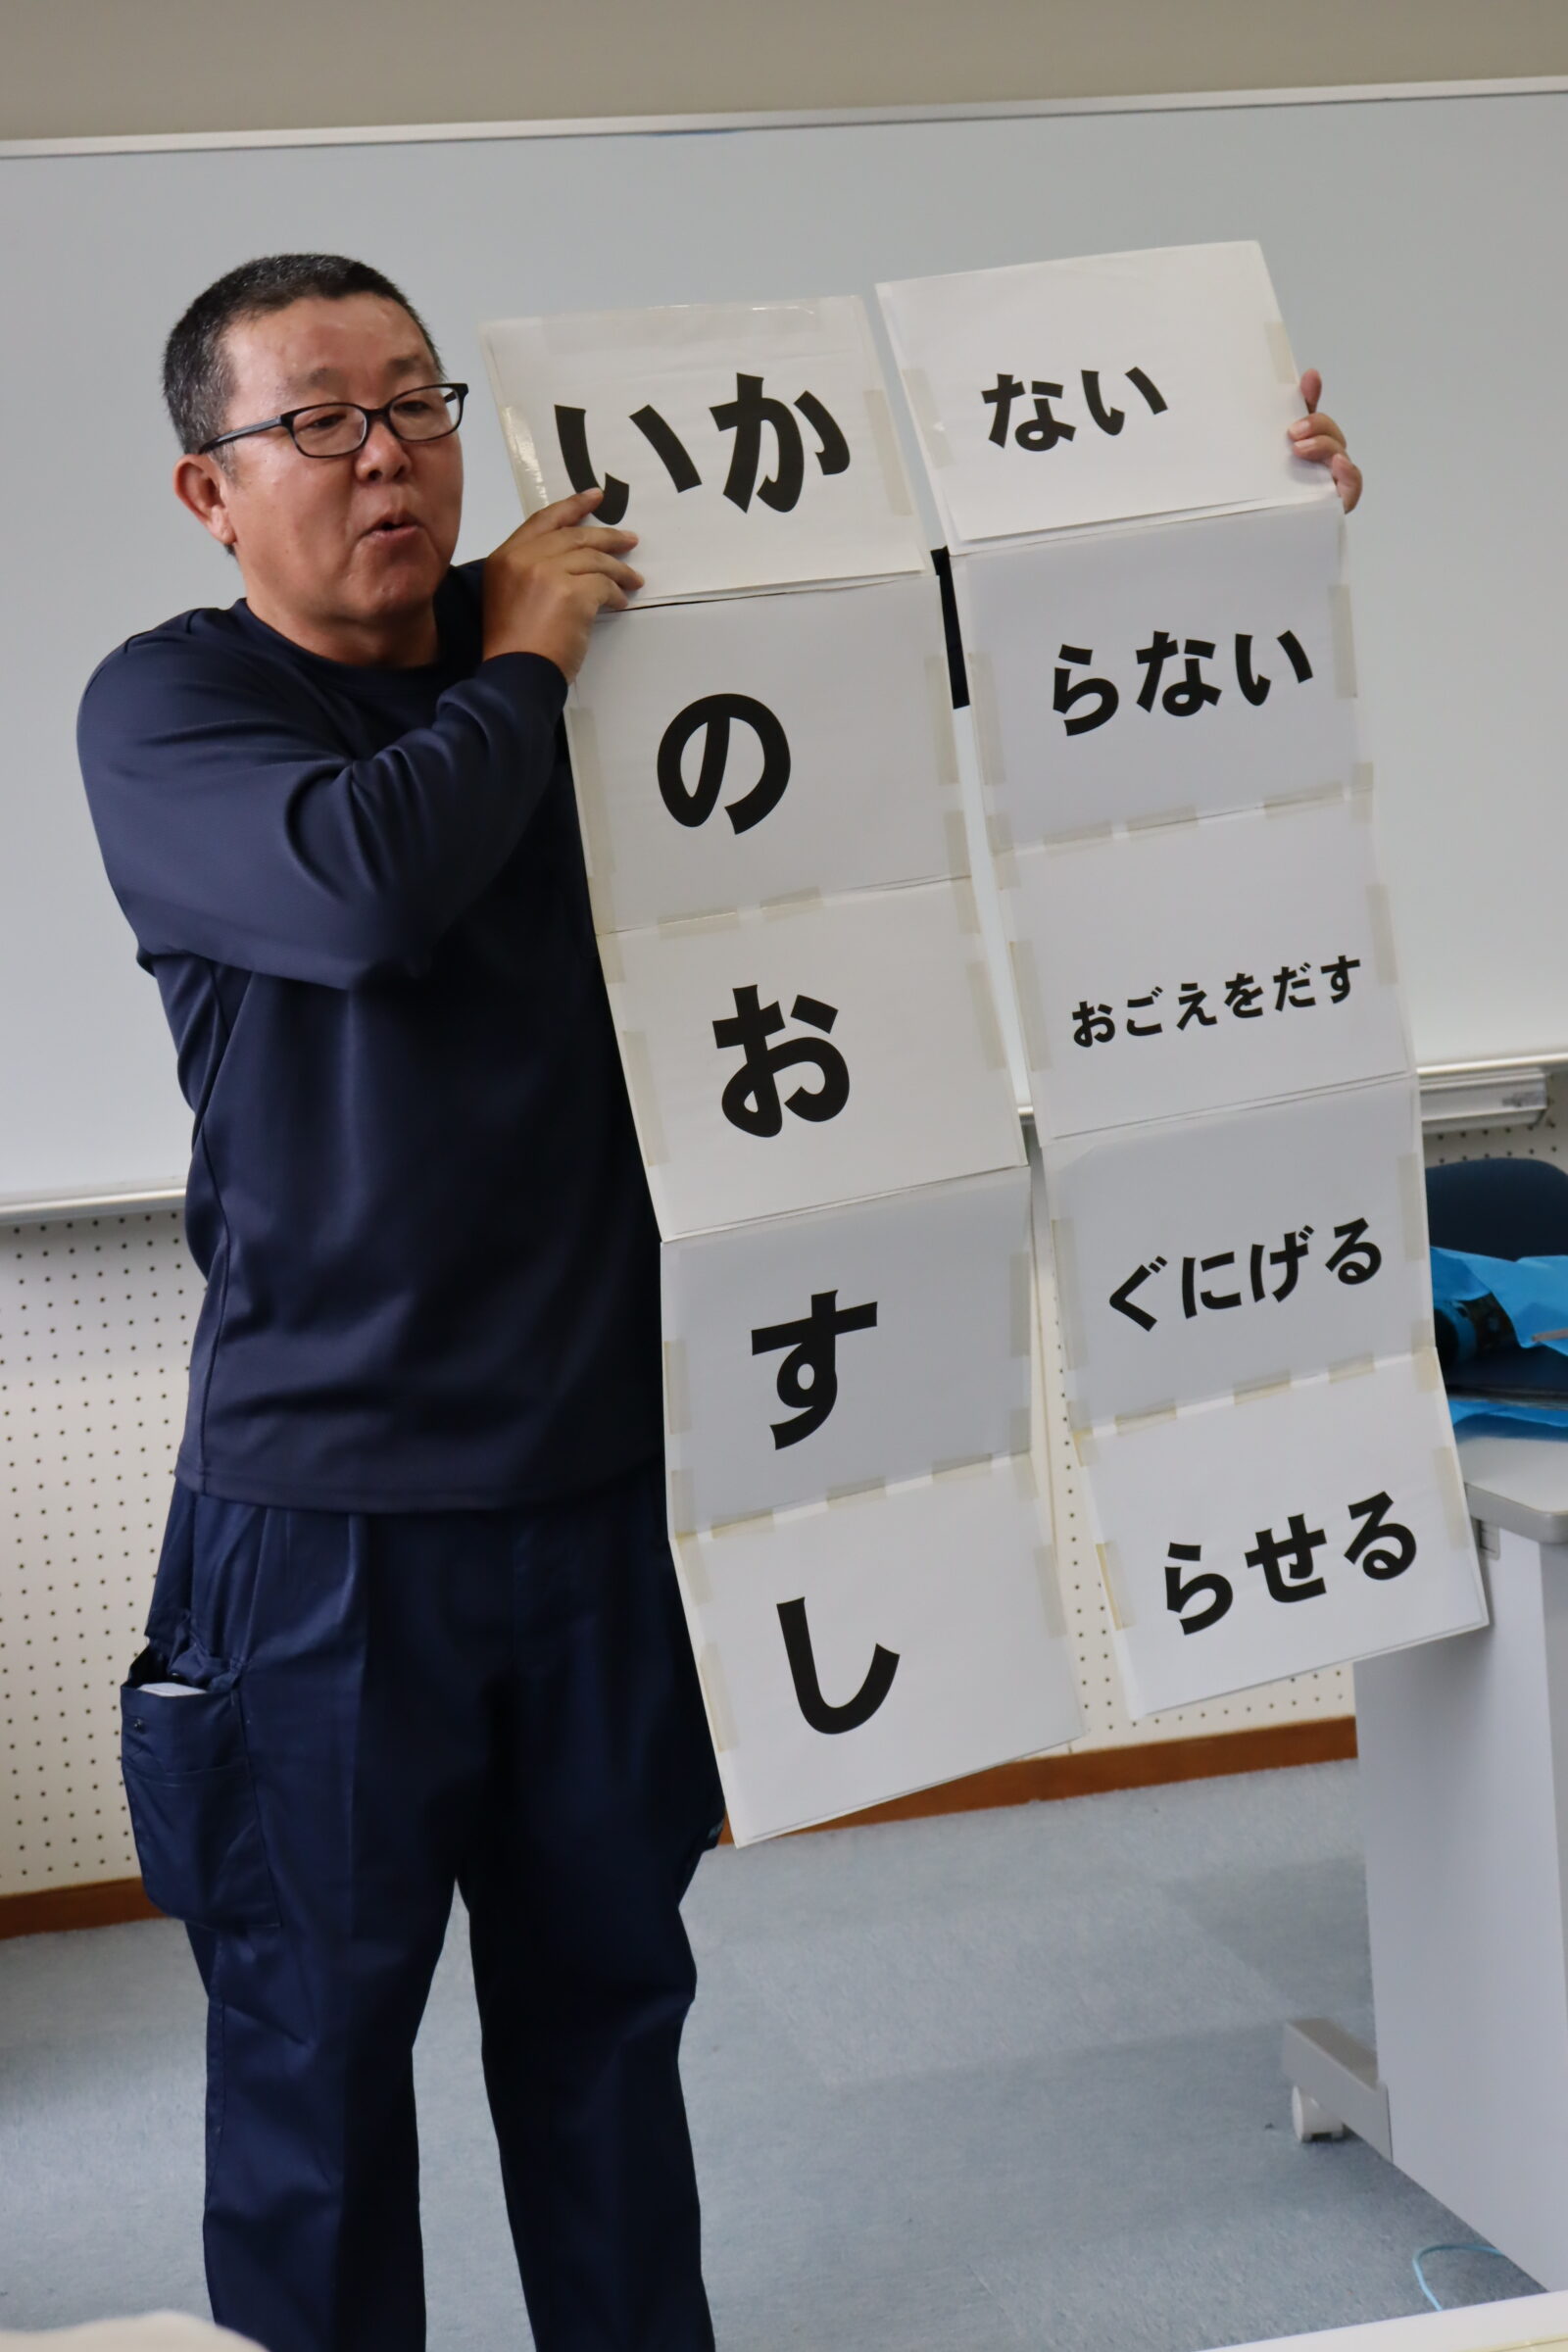 いか ない
の らない
お おごえをだす
す ぐにげる
し らせる